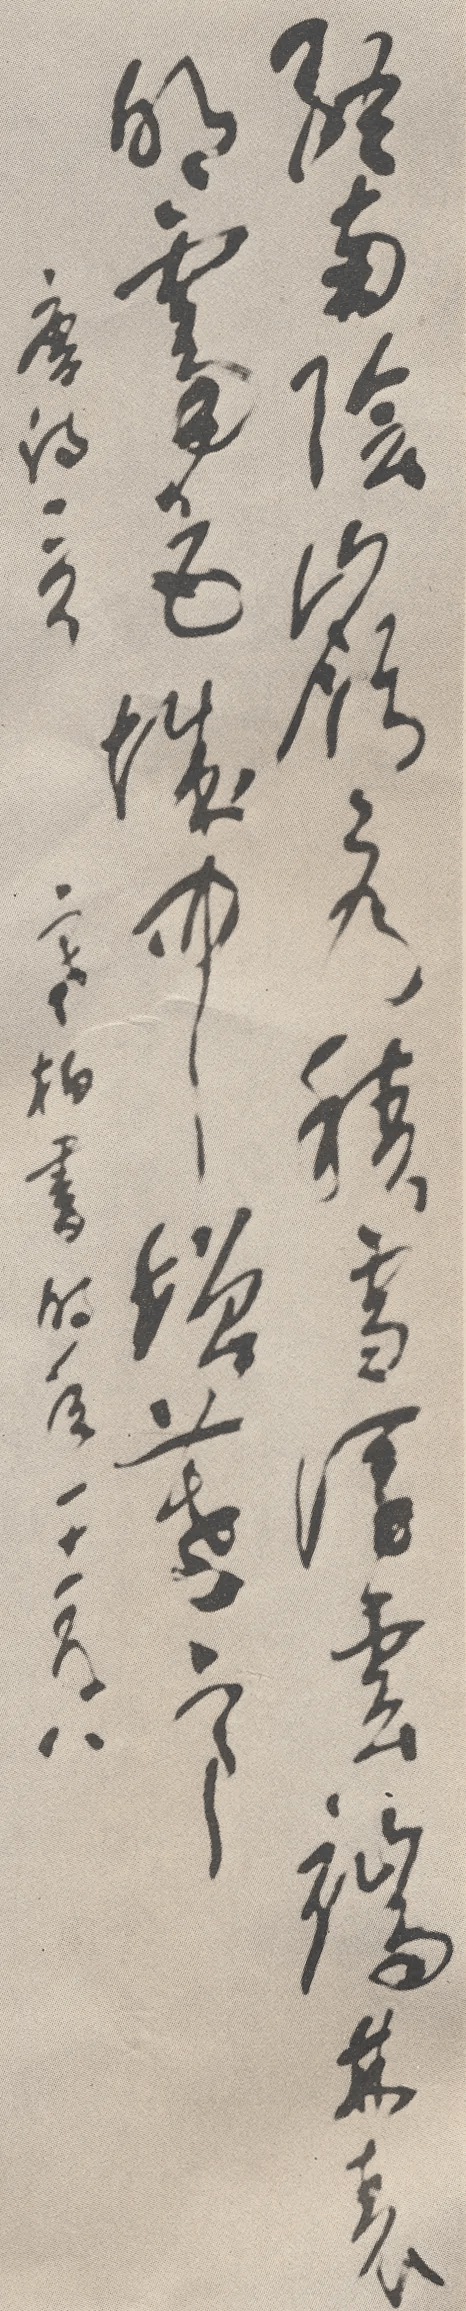 終南陰嶺秀積雪浮雲端林表
明霽色城中增暮寒
唐詩一首 柏書時年